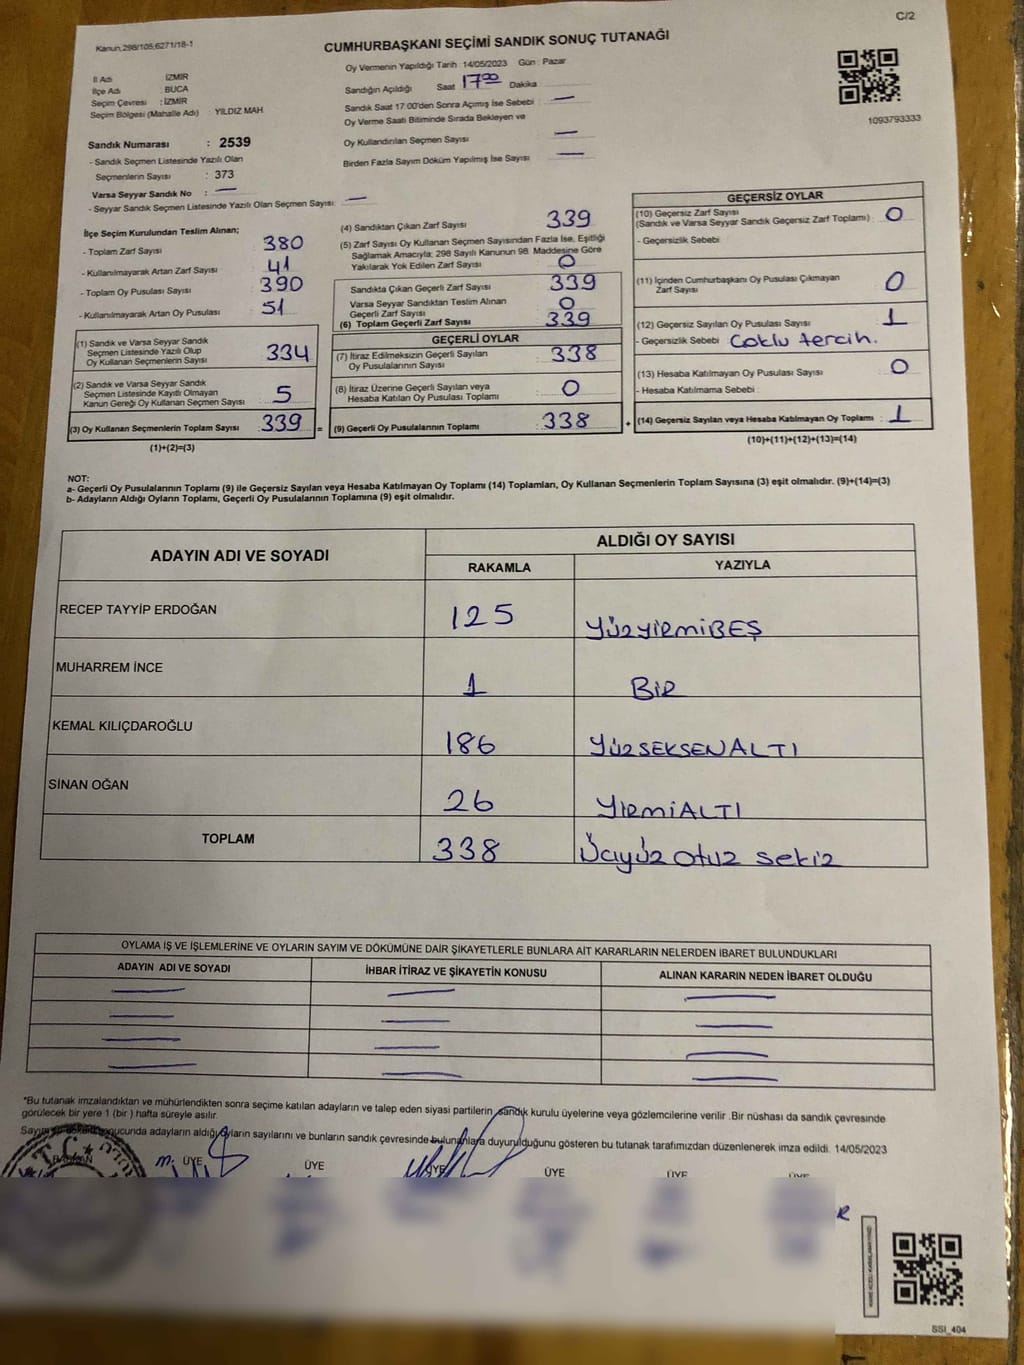 C/2
Kanun,298/105,6271/18-1
CUMHURBAŞKANI SEÇİMİ SANDIK SONUÇ TUTANAĞI
İl Adı : İZMİR
İlçe Adı : BUCA
Seçim Çevresi : İZMİR
Seçim Bölgesi (Mahalle Adı) YILDIZ MAH.
Sandık Numarası : 2539
- Sandık Seçmen Listesinde Yazılı Olan
Seçmenlerin Sayısı : 373
Varsa Seyyar Sandık No : —
- Seyyar Sandık Seçmen Listesinde Yazılı Olan Seçmen Sayısı: —
Oy Vermenin Yapıldığı Tarih : 14/05/2023 Gün : Pazar
Sandığın Açıldığı Saat 17 00 Dakika
Sandık Saat 17:00'den Sonra Açımış İse Sebebi : —
Oy Verme Saati Bitiminde Sırada Bekleyen ve
Oy Kullandırılan Seçmen Sayısı —
Birden Fazla Sayım Döküm Yapılmış İse Sayısı —
1093793333
İlçe Seçim Kurulundan Teslim Alınan;
- Toplam Zarf Sayısı 380
- Kullanılmayarak Artan Zarf Sayısı 41
- Toplam Oy Pusulası Sayısı 390
- Kullanılmayarak Artan Oy Pusulası 51
(1) Sandık ve Varsa Seyyar Sandık
Seçmen Listesinde Yazılı Olup
Oy Kullanan Seçmenlerin Sayısı 334
(2) Sandık ve Varsa Seyyar Sandık
Seçmen Listesinde Kayıtlı Olmayan
Kanun Gereği Oy Kullanan Seçmen Sayısı 5
(3) Oy Kullanan Seçmenlerin Toplam Sayısı : 339 =
(1)+(2)=(3)
(4) Sandıktan Çıkan Zarf Sayısı 339
(5) Zarf Sayısı Oy Kullanan Seçmen Sayısından Fazla İse, Eşitliği
Sağlamak Amacıyla; 298 Sayılı Kanunun 98. Maddesine Göre
Yakılarak Yok Edilen Zarf Sayısı 0
Sandıkta Çıkan Geçerli Zarf Sayısı 339
Varsa Seyyar Sandıktan Teslim Alınan
Geçerli Zarf Sayısı 0
(6) Toplam Geçerli Zarf Sayısı 339
GEÇERLİ OYLAR
(7) İtiraz Edilmeksizin Geçerli Sayılan
Oy Pusulalarının Sayısı 338
(8) İtiraz Üzerine Geçerli Sayılan veya
Hesaba Katılan Oy Pusulası Toplamı 0
(9) Geçerli Oy Pusulalarının Toplamı : 338 +
GEÇERSİZ OYLAR
(10) Geçersiz Zarf Sayısı
(Sandık ve Varsa Seyyar Sandık Geçersiz Zarf Toplamı) : 0
- Geçersizlik Sebebi
(11) İçinden Cumhurbaşkanı Oy Pusulası Çıkmayan
Zarf Sayısı 0
(12) Geçersiz Sayılan Oy Pusulası Sayısı : 1
- Geçersizlik Sebebi Çoklu tercih.
(13) Hesaba Katılmayan Oy Pusulası Sayısı : 0
- Hesaba Katılmama Sebebi :
(14) Geçersiz Sayılan veya Hesaba Katılmayan Oy Toplamı : 1
(10)+(11)+(12)+(13)=(14)
NOT:
a- Geçerli Oy Pusulalarının Toplamı (9) ile Geçersiz Sayılan veya Hesaba Katılmayan Oy Toplamı (14) Toplamları, Oy Kullanan Seçmenlerin Toplam Sayısına (3) eşit olmalıdır. (9)+(14)=(3)
b- Adayların Aldığı Oyların Toplamı, Geçerli Oy Pusulalarının Toplamına (9) eşit olmalıdır.
ADAYIN ADI VE SOYADI ALDIĞI OY SAYISI
RAKAMLA YAZIYLA
RECEP TAYYİP ERDOĞAN 125 YÜZYİRMİBEŞ
MUHARREM İNCE 1 BİR
KEMAL KILIÇDAROĞLU 186 YÜZSEKSENALTI
SİNAN OĞAN 26 YİRMİALTI
TOPLAM 338 Üçyüz otuz sekiz
OYLAMA İŞ VE İŞLEMLERİNE VE OYLARIN SAYIM VE DÖKÜMÜNE DAİR ŞİKAYETLERLE BUNLARA AİT KARARLARIN NELERDEN İBARET BULUNDUKLARI
ADAYIN ADI VE SOYADI İHBAR İTİRAZ VE ŞİKAYETİN KONUSU ALINAN KARARIN NEDEN İBARET OLDUĞU
*Bu tutanak imzalandıktan ve mühürlendikten sonra seçime katılan adayların ve talep eden siyasi partilerin sandık kurulu üyelerine veya gözlemcilerine verilir .Bir nüshası da sandık çevresinde
görülecek bir yere 1 (bir ) hafta süreyle asılır.
Sayım ve döküm sonucunda adayların aldığı oyların sayılarını ve bunların sandık çevresinde bulunanlara duyurulduğunu gösteren bu tutanak tarafımızdan düzenlenerek imza edildi. 14/05/2023
BAŞKAN ÜYE ÜYE ÜYE ÜYE ÜYE ÜYE
T.C.
SSI_404